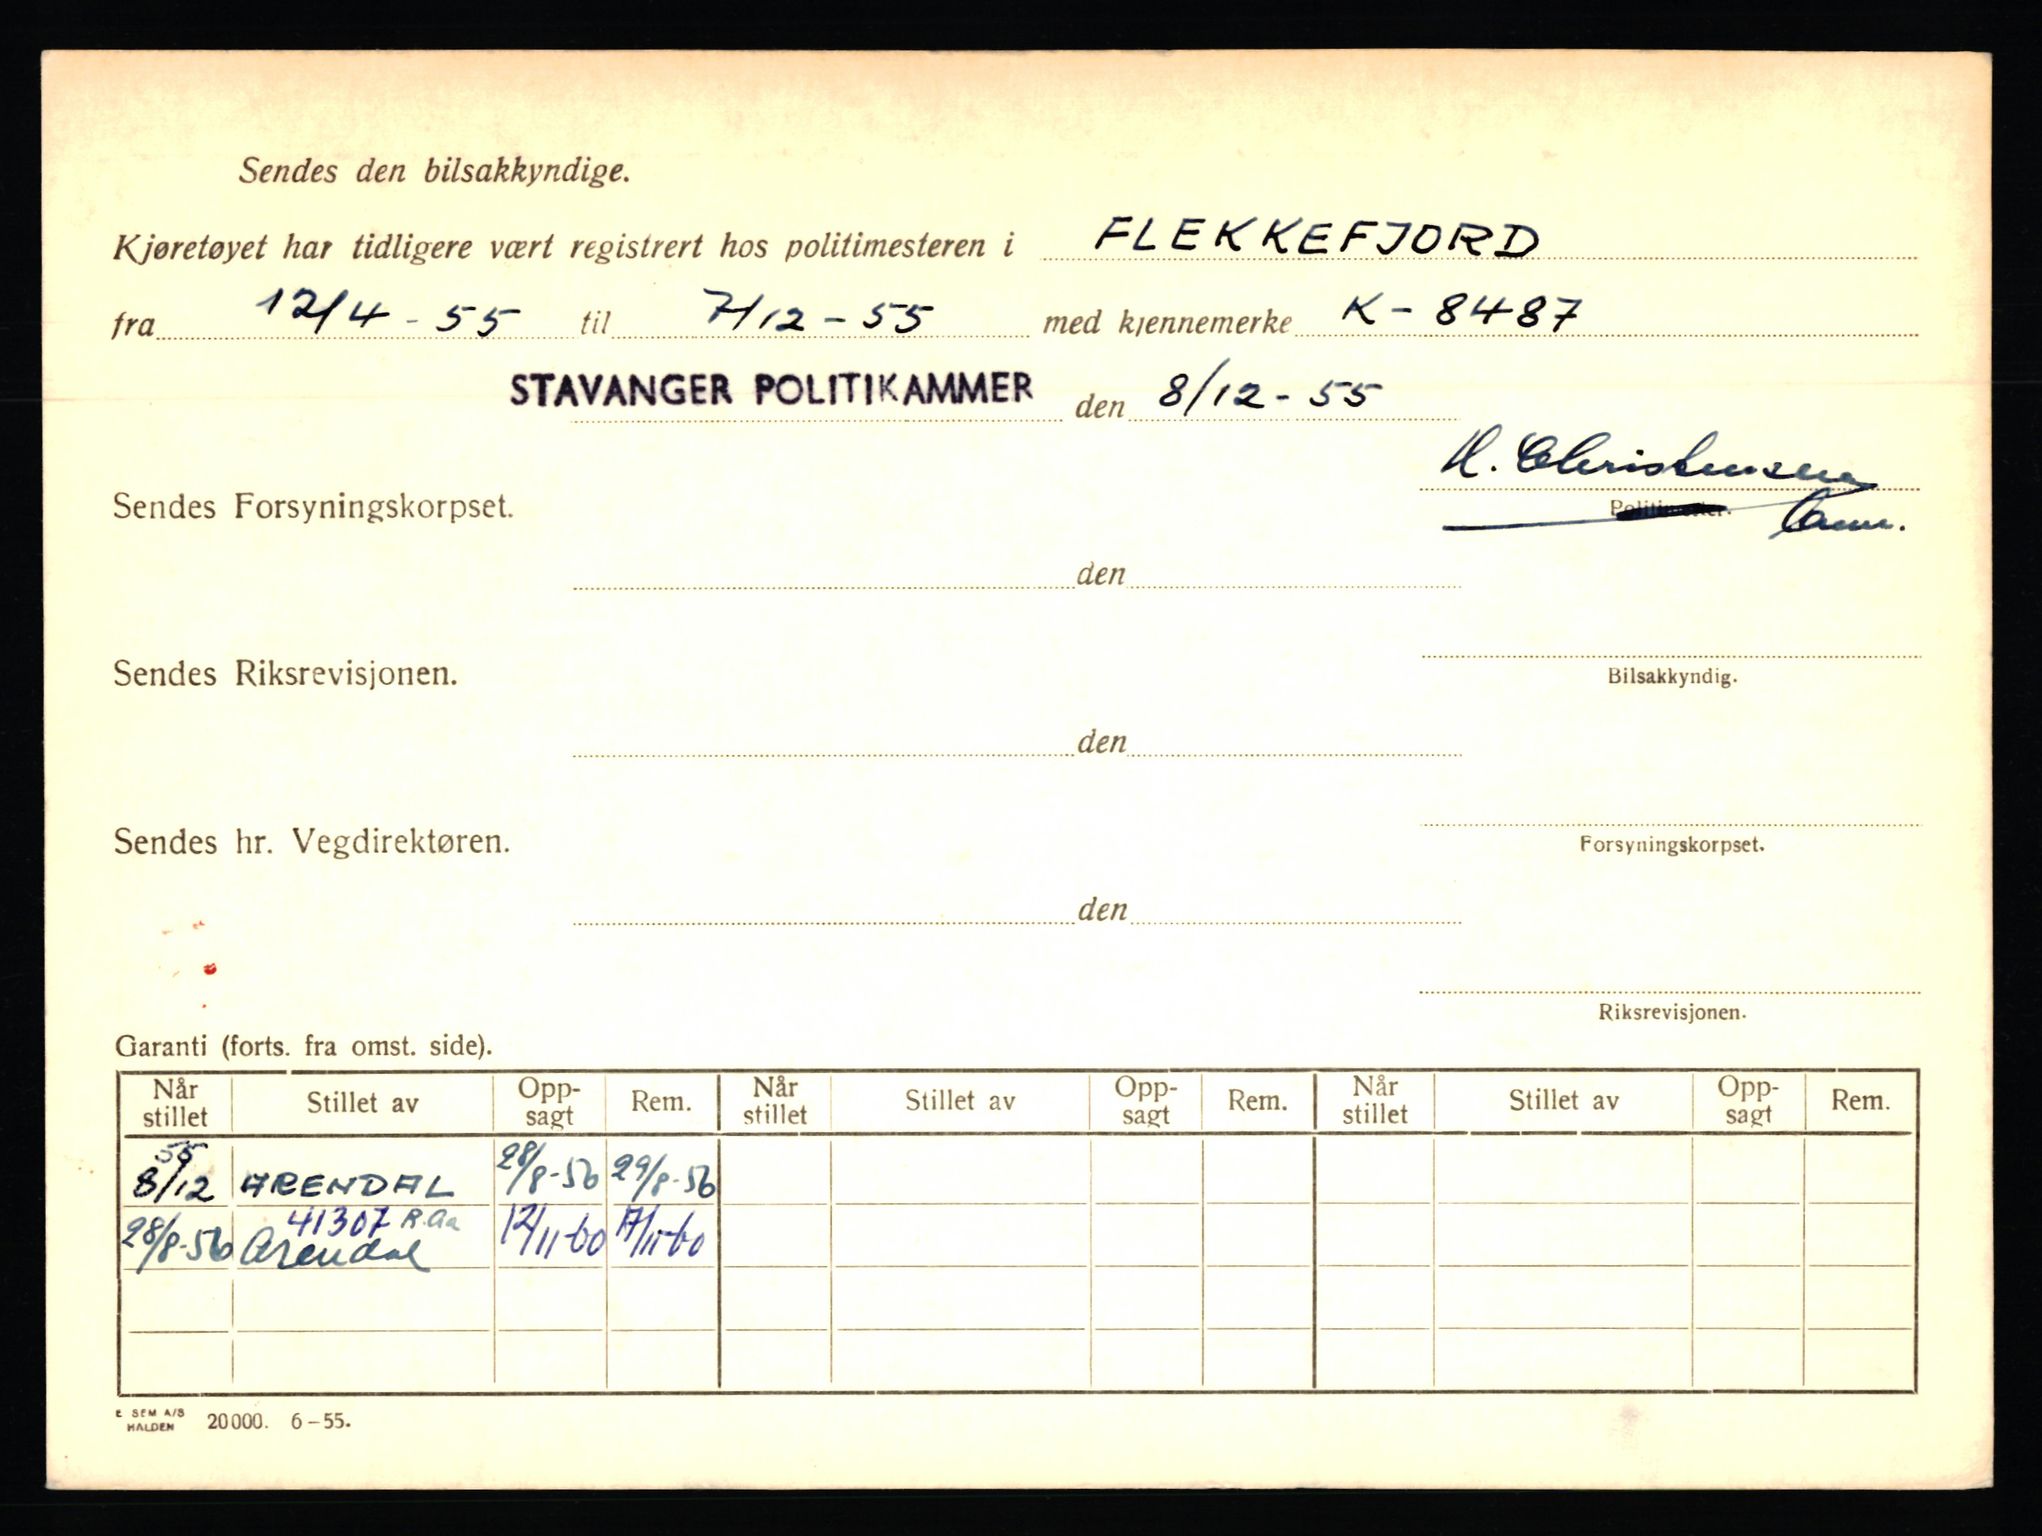 Sendes den bilsakkyndige.
Kjøretøyet har tidligere vært registrert hos politimesteren i FLEKKEFJORD
fra 12/4 - 55 til 7/12 - 55 med kjennemerke K - 8487
STAVANGER POLITIKAMMER den 8/12 - 55
H. Christensen
Sendes Forsyningskorpset.
Politimester.
den
Sendes Riksrevisjonen.
Bilsakkyndig.
den
Sendes hr. Vegdirektøren.
Forsyningskorpset.
den
Riksrevisjonen.
Garanti (forts. fra omst. side).
Når stillet Stillet av Opp- sagt Rem. Når stillet Stillet av Opp- sagt Rem. Når stillet Stillet av Opp- sagt Rem.
55
8/12 ARENDAL 28/8-56 29/8-56
41307 R.Aa
28/8-56 Arendal 12/11-60 17/11-60
E SEM A/S
HALDEN 20000. 6-55.